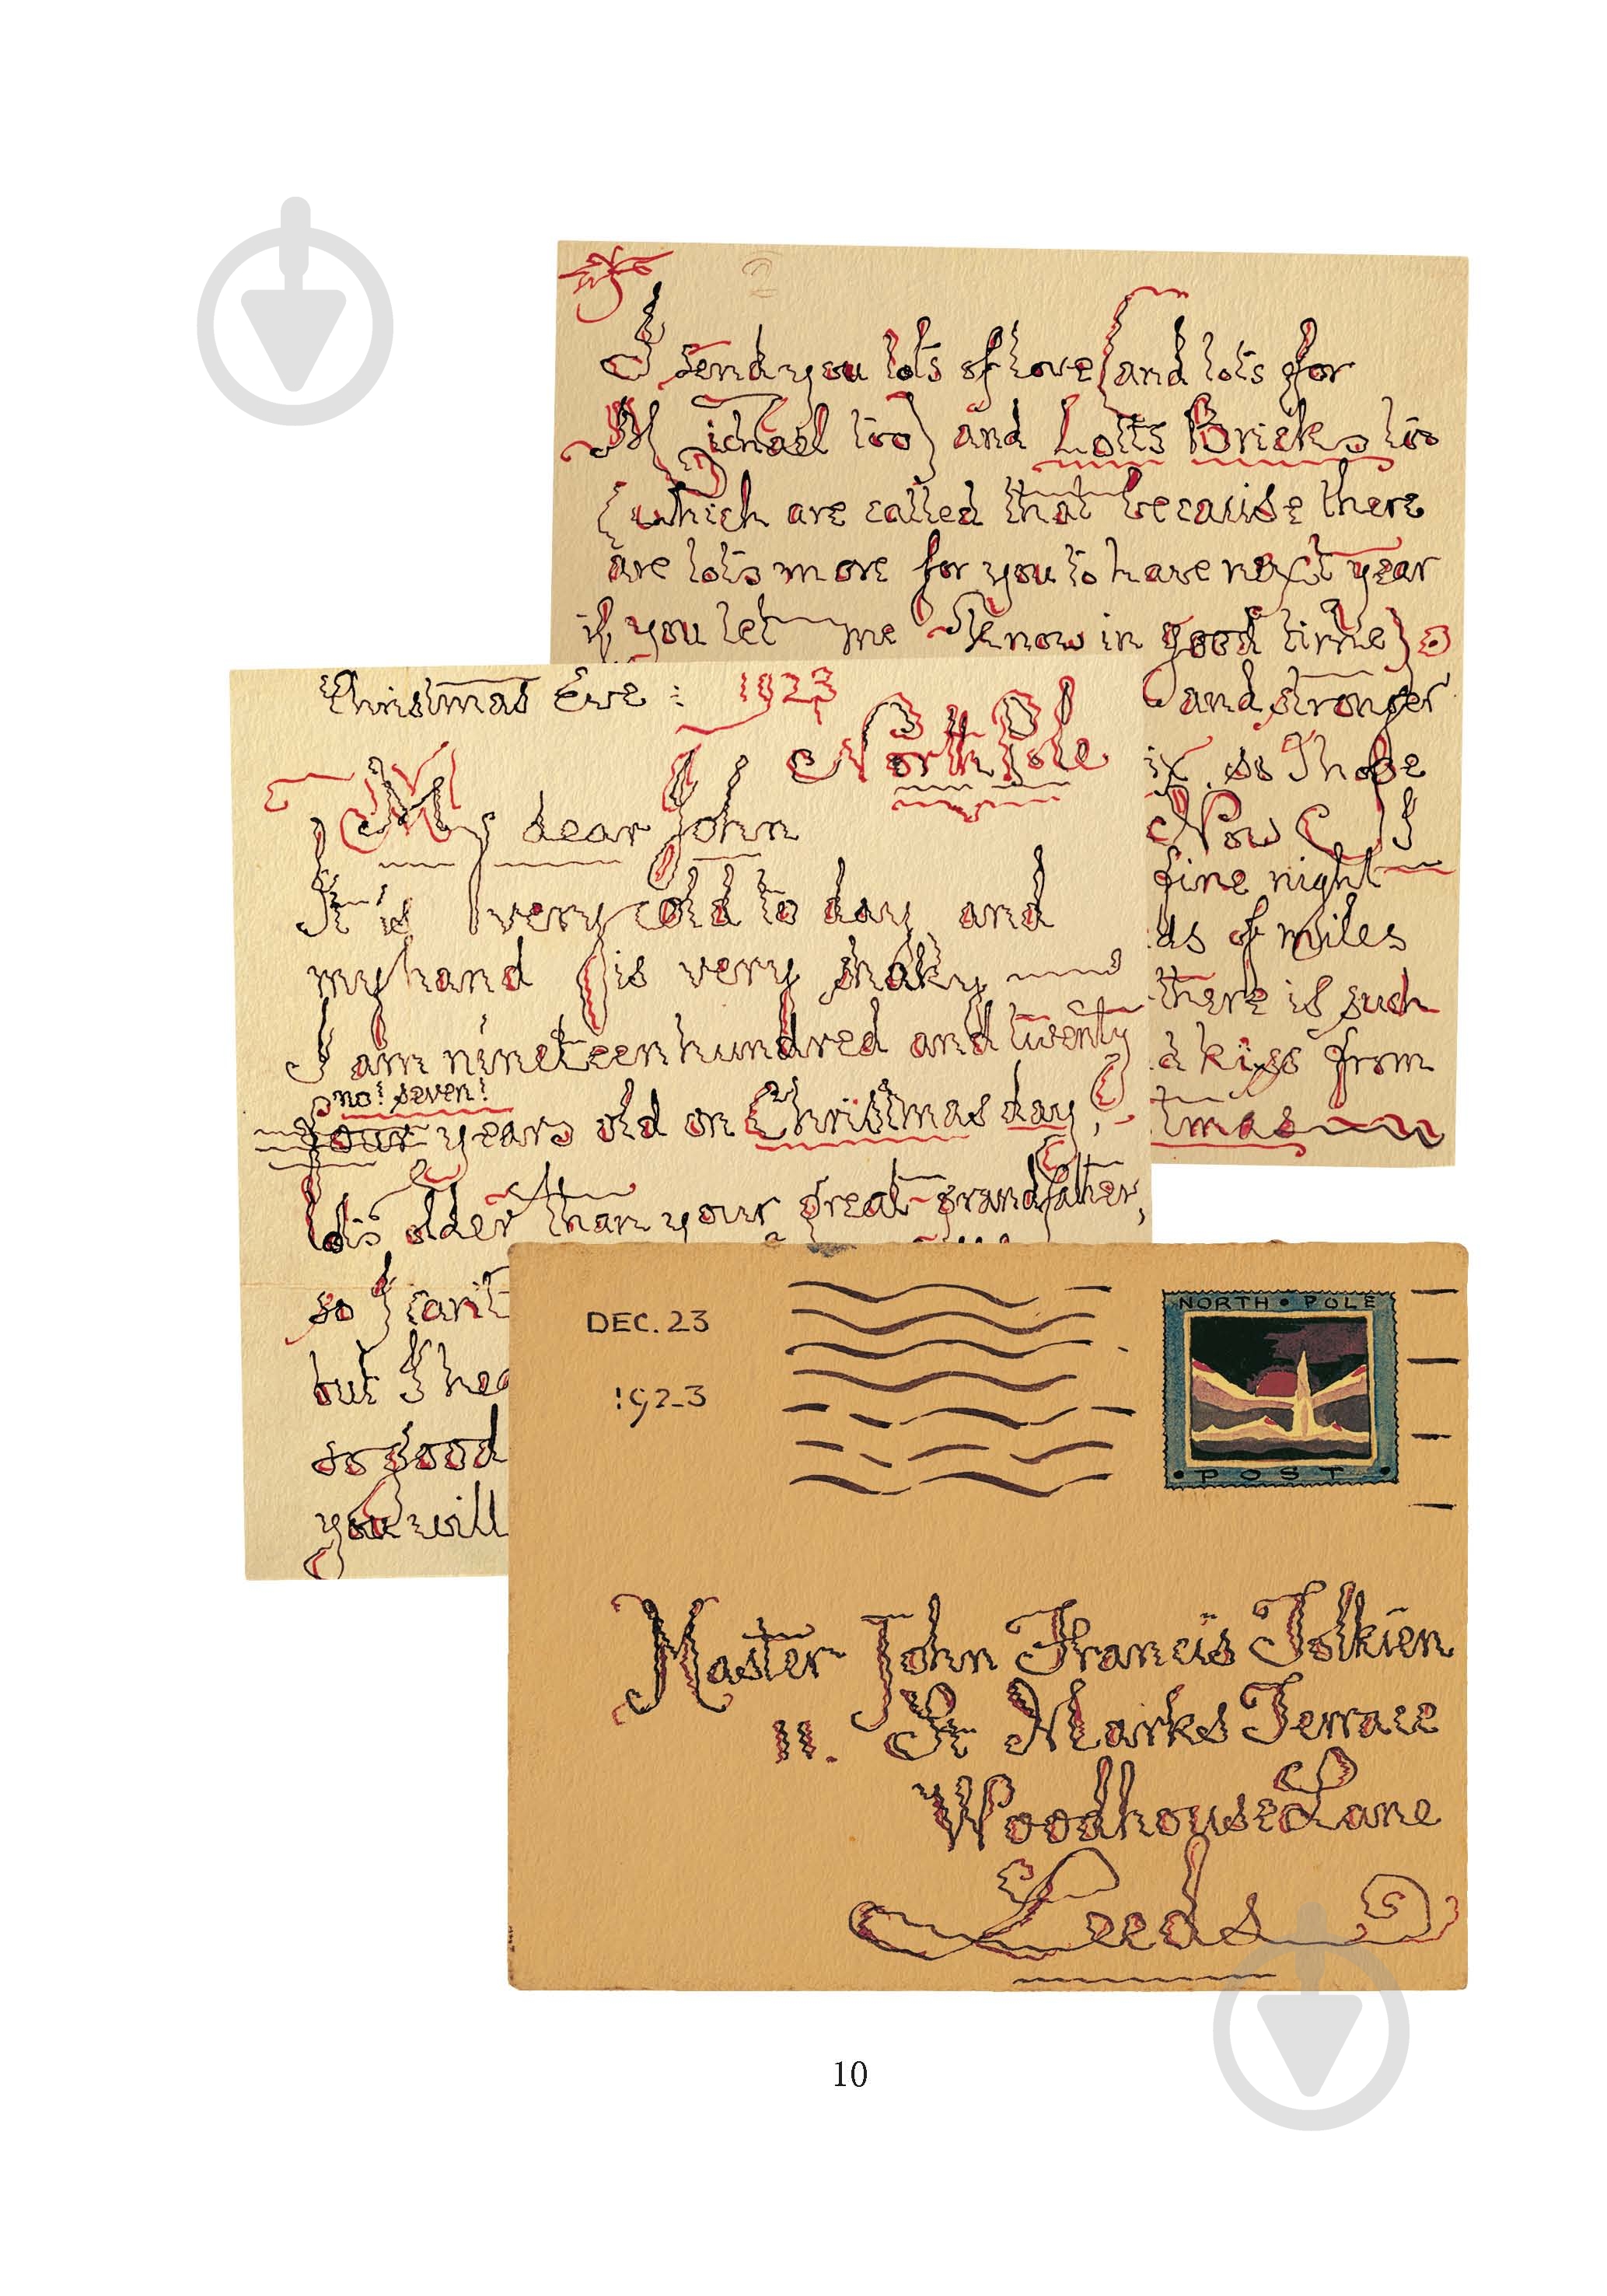 2
I send you lots of love (and lots for
Michael too) and Lotts Bricks too
(which are called that because there
are lots more for you to have next year
if you let me know in good time)
and stronger
so I hope
Now I
fine night
of miles
there is such
a kiss from
Christmas Eve : 1923
North Pole
My dear John
It is very cold today and
my hand is very shaky
I am nineteen hundred and twenty
no! seven!
four years old on Christmas day,
lots older than your great-grandfather,
so I can't
but I hea
so good
you will
DEC. 23
1923
NORTH • POLE
• POST •
Master John Francis Tolkien
11. St Marks Terrace
Woodhouse Lane
Leeds
10